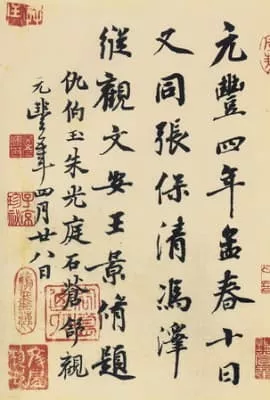 元豐四年孟春十日
又同張保清馮澤
縱觀文安王景脩題
仇伯玉朱光庭石蒼舒觀
元豐年四月廿八日